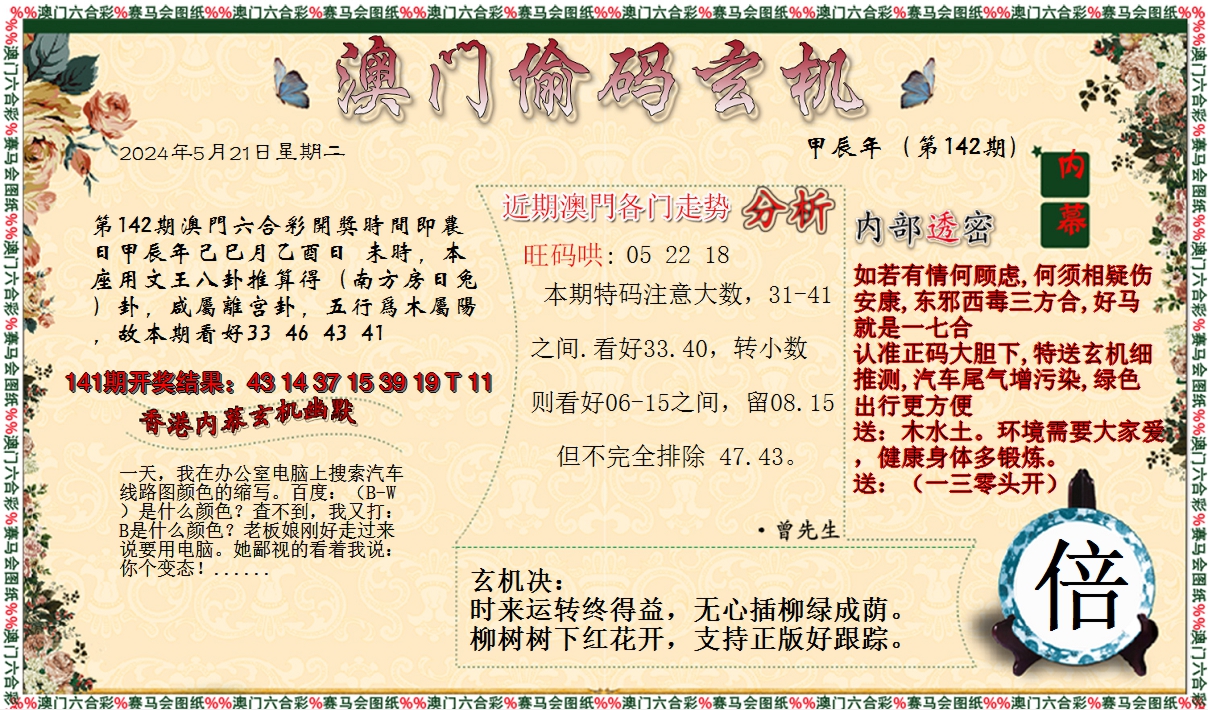 %%澳门六合彩%赛马会图纸%%澳门六合彩%赛马会图纸%%澳门六合彩%赛马会图纸%%澳门六合彩%赛马会图纸%%澳门六合彩%赛马会图纸%%澳门六合彩%赛马会图纸%%
澳门偷码玄机
2024年5月21日星期二
甲辰年（第142期）
第142期澳門六合彩開獎時間即農
日甲辰年己巳月乙酉日 未時，本
座用文王八卦推算得（南方房日兔
）卦，咸屬離宫卦，五行爲木屬陽
，故本期看好33 46 43 41
141期开奖结果：43 14 37 15 39 19 T 11
香港内幕玄机幽默
一天，我在办公室电脑上搜索汽车
线路图颜色的缩写。百度：（B-W
）是什么颜色？查不到，我又打：
B是什么颜色？老板娘刚好走过来
说要用电脑。她鄙视的看着我说：
你个变态！......
近期澳門各门走势 分析
旺码哄: 05 22 18
本期特码注意大数，31-41
之间.看好33.40，转小数
则看好06-15之间，留08.15
但不完全排除 47.43。
·曾先生
玄机决：
时来运转终得益，无心插柳绿成荫。
柳树树下红花开，支持正版好跟踪。
内部透密
内幕
如若有情何顾虑,何须相疑伤
安康,东邪西毒三方合,好马
就是一七合
认准正码大胆下,特送玄机细
推测,汽车尾气增污染,绿色
出行更方便
送：木水土。环境需要大家爱
，健康身体多锻炼。
送：（一三零头开）
倍
%%澳门六合彩%赛马会图纸%%澳门六合彩%赛马会图纸%%澳门六合彩%赛马会图纸%%澳门六合彩%赛马会图纸%%澳门六合彩%赛马会图纸%%澳门六合彩%赛马会图纸%%